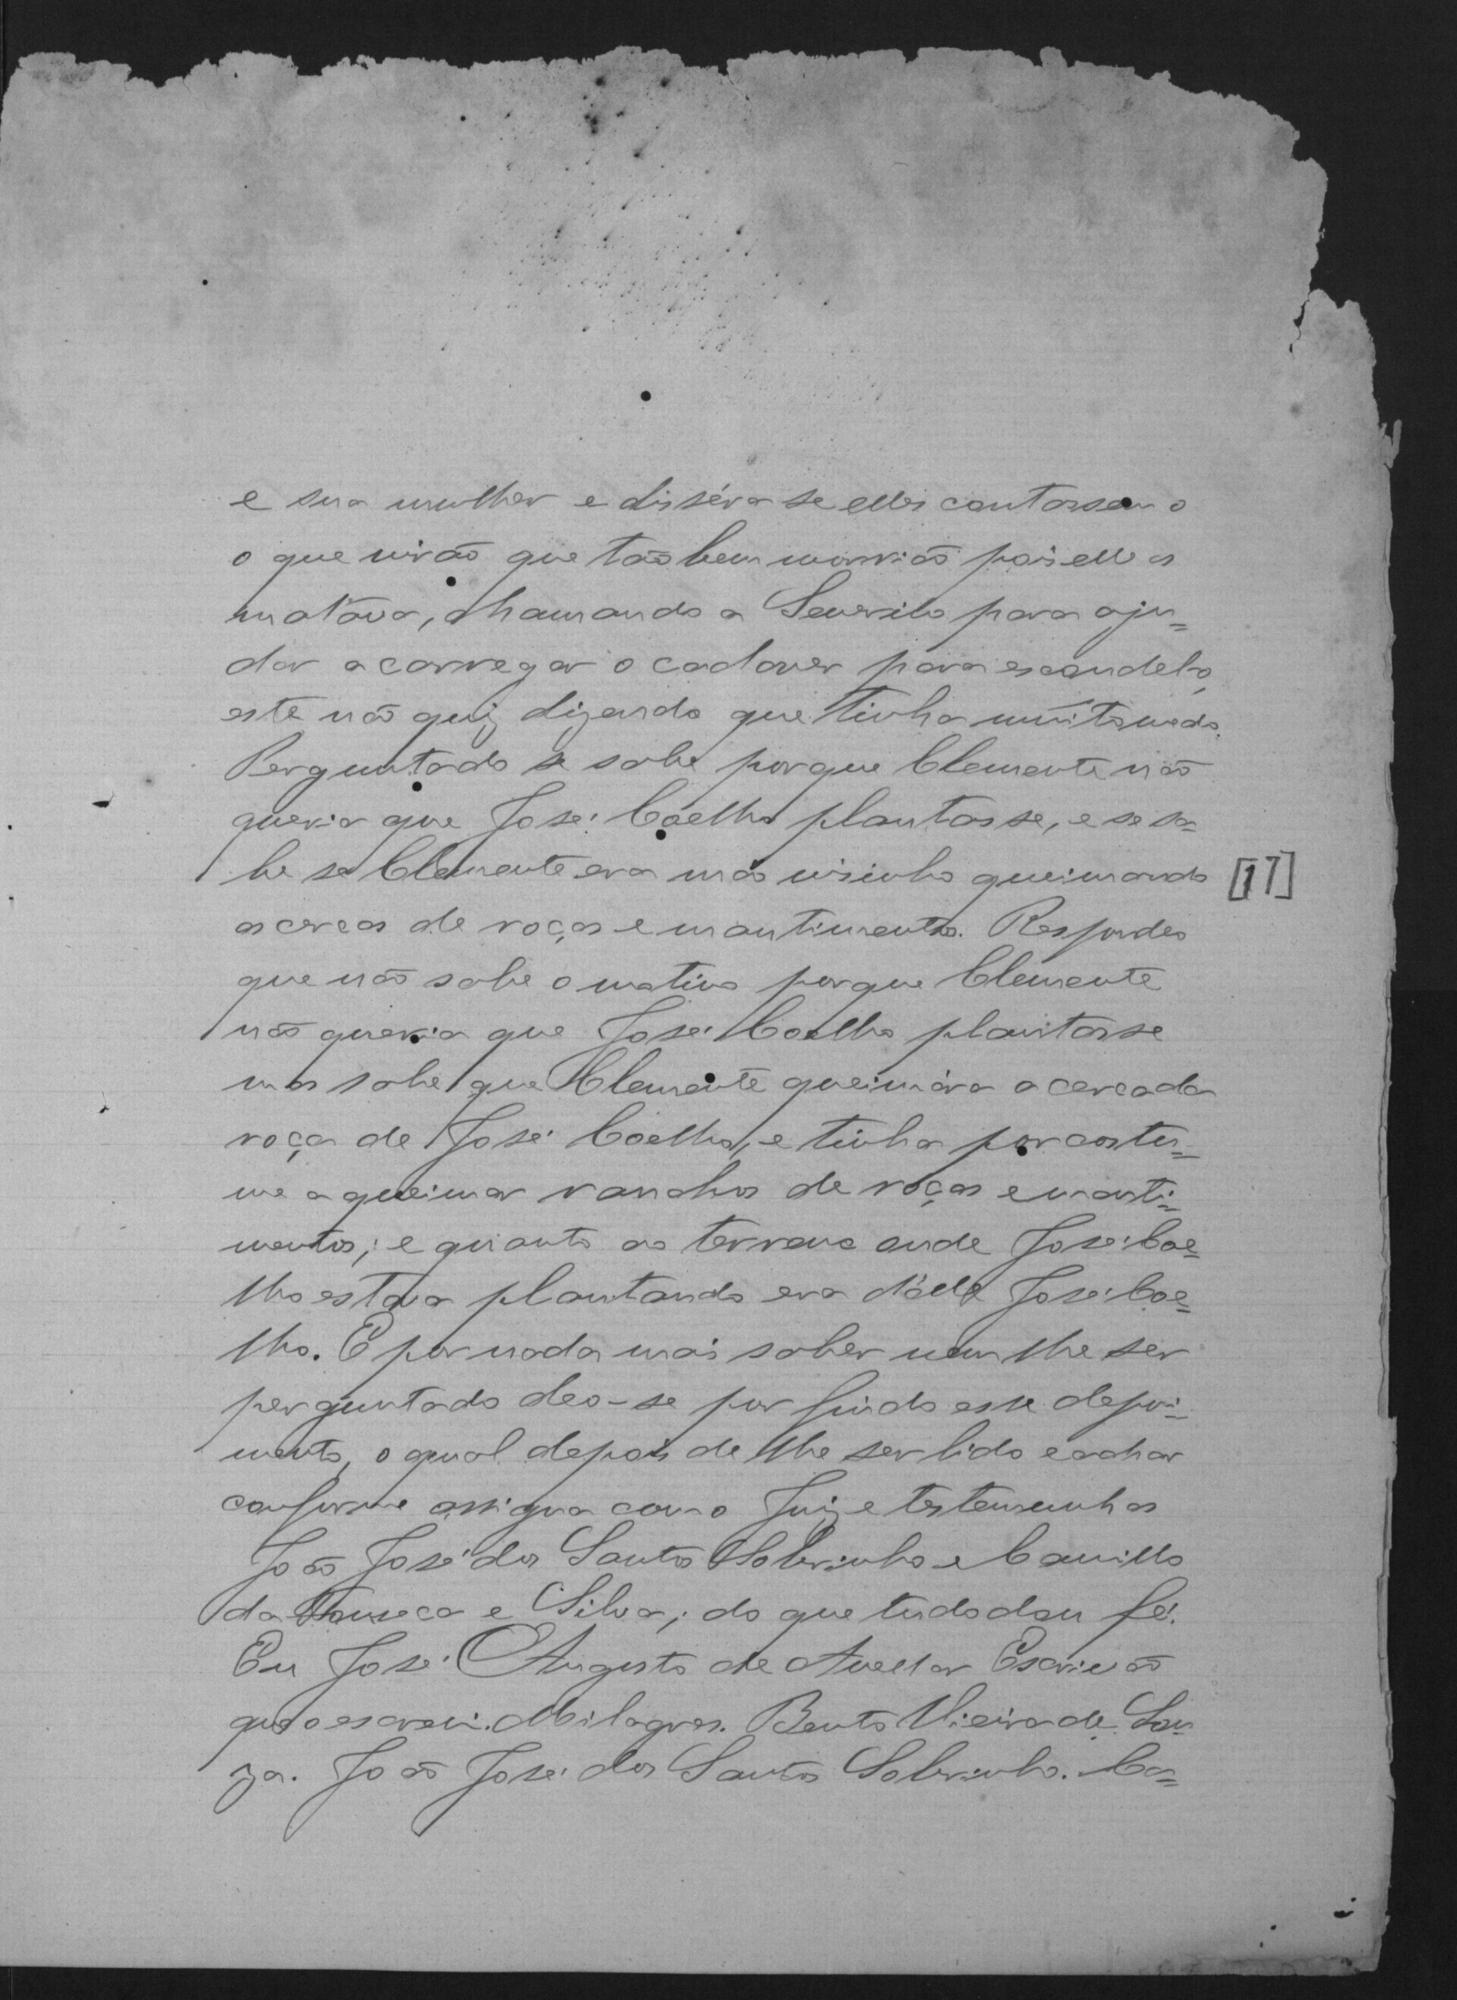 e sua mulher e disséra se elles contassem o
o que virão que tão bem morrião pois elle os
matava, chamando a Severino para aju=
dar a carregar o cadaver para escondel-o,
este não quiz dizendo que tinha muito medo.
Perguntado se sabe porque Clemente não
queria que José Coelho plantasse, e se sa=
be se Clemente era máo visinho queimando
as cercas de roças e mantimentos. Respondeo
que não sabe o motivo porque Clemente
não queria que José Coelho plantasse
mas sabe que Clemente queimára a cerca da
roça de José Coelho, e tinha por costu=
me a queimar ranchos de roças e manti=
mentos; e quanto ao terreno onde José Coe=
lho estava plantando era d'elle José Coe=
lho. E por nada mais saber nem lhe ser
perguntado deo-se por findo esse depoi=
mento, o qual depois de lhe ser lido e achar
conforme assigna com o Juiz e testemunhas
João José dos Santos Sobrinho e Camillo
da Fonseca e Silva; do que tudo dou fé.
Eu José Augusto de Avellar Escrivão
que o escrevi. Milagres. Bento Vieira de Sou=
za. João José dos Santos Sobrinho. Ca=
[17]